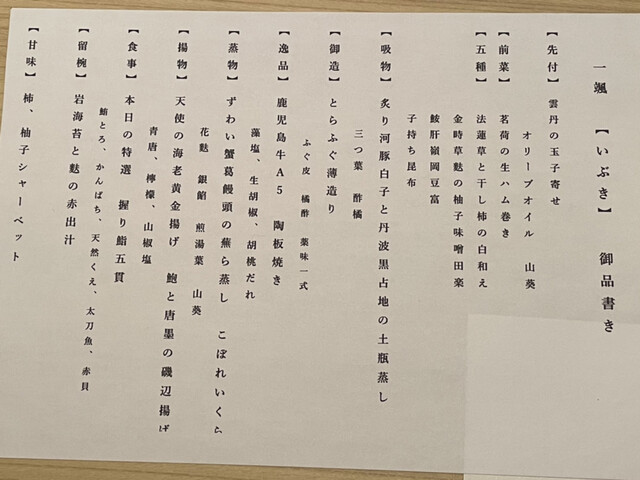 一颯 【いぶき】 御品書き
【先付】 雲丹の玉子寄せ
オリーブオイル 山葵
【前菜】 茗荷の生ハム巻き
【五種】 法蓮草と干し柿の白和え
金時草麩の柚子味噌田楽
鮟肝嶺岡豆富
子持ち昆布
【吸物】 炙り河豚白子と丹波黒占地の土瓶蒸し
三つ葉 酢橘
【御造】 とらふぐ薄造り
ふぐ皮 橘酢 薬味一式
【逸品】 鹿児島牛A5 陶板焼き
藻塩、生胡椒、胡桃だれ
【蒸物】 ずわい蟹葛饅頭の蕪ら蒸し こぼれいくら
花麩 銀餡 煎湯葉 山葵
【揚物】 天使の海老黄金揚げ 鮑と唐墨の磯辺揚げ
青唐、檸檬、山椒塩
【食事】 本日の特選 握り鮨五貫
鮪とろ、かんぱち、天然くえ、太刀魚、赤貝
【留椀】 岩海苔と麩の赤出汁
【甘味】 柿、柚子シャーベット